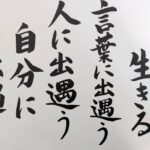 生きる
言葉に出遇う
人に出遇う
自分に